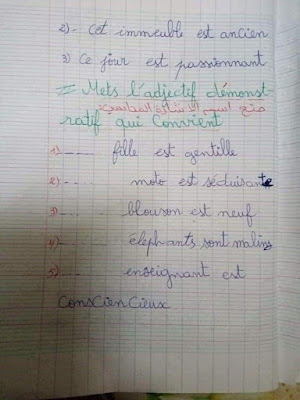 2)- Cet immeuble est ancien
3) Ce jour est passionnant
= Mets l'adjectif démonst-
ضع اسم الإشارة المناسب:
ratif qui convient
1)---- fille est gentille
2)---- moto est séduisante
3)---- blouson est neuf
4)---- éléphants sont malins
5)---- enseignant est
consciencieux